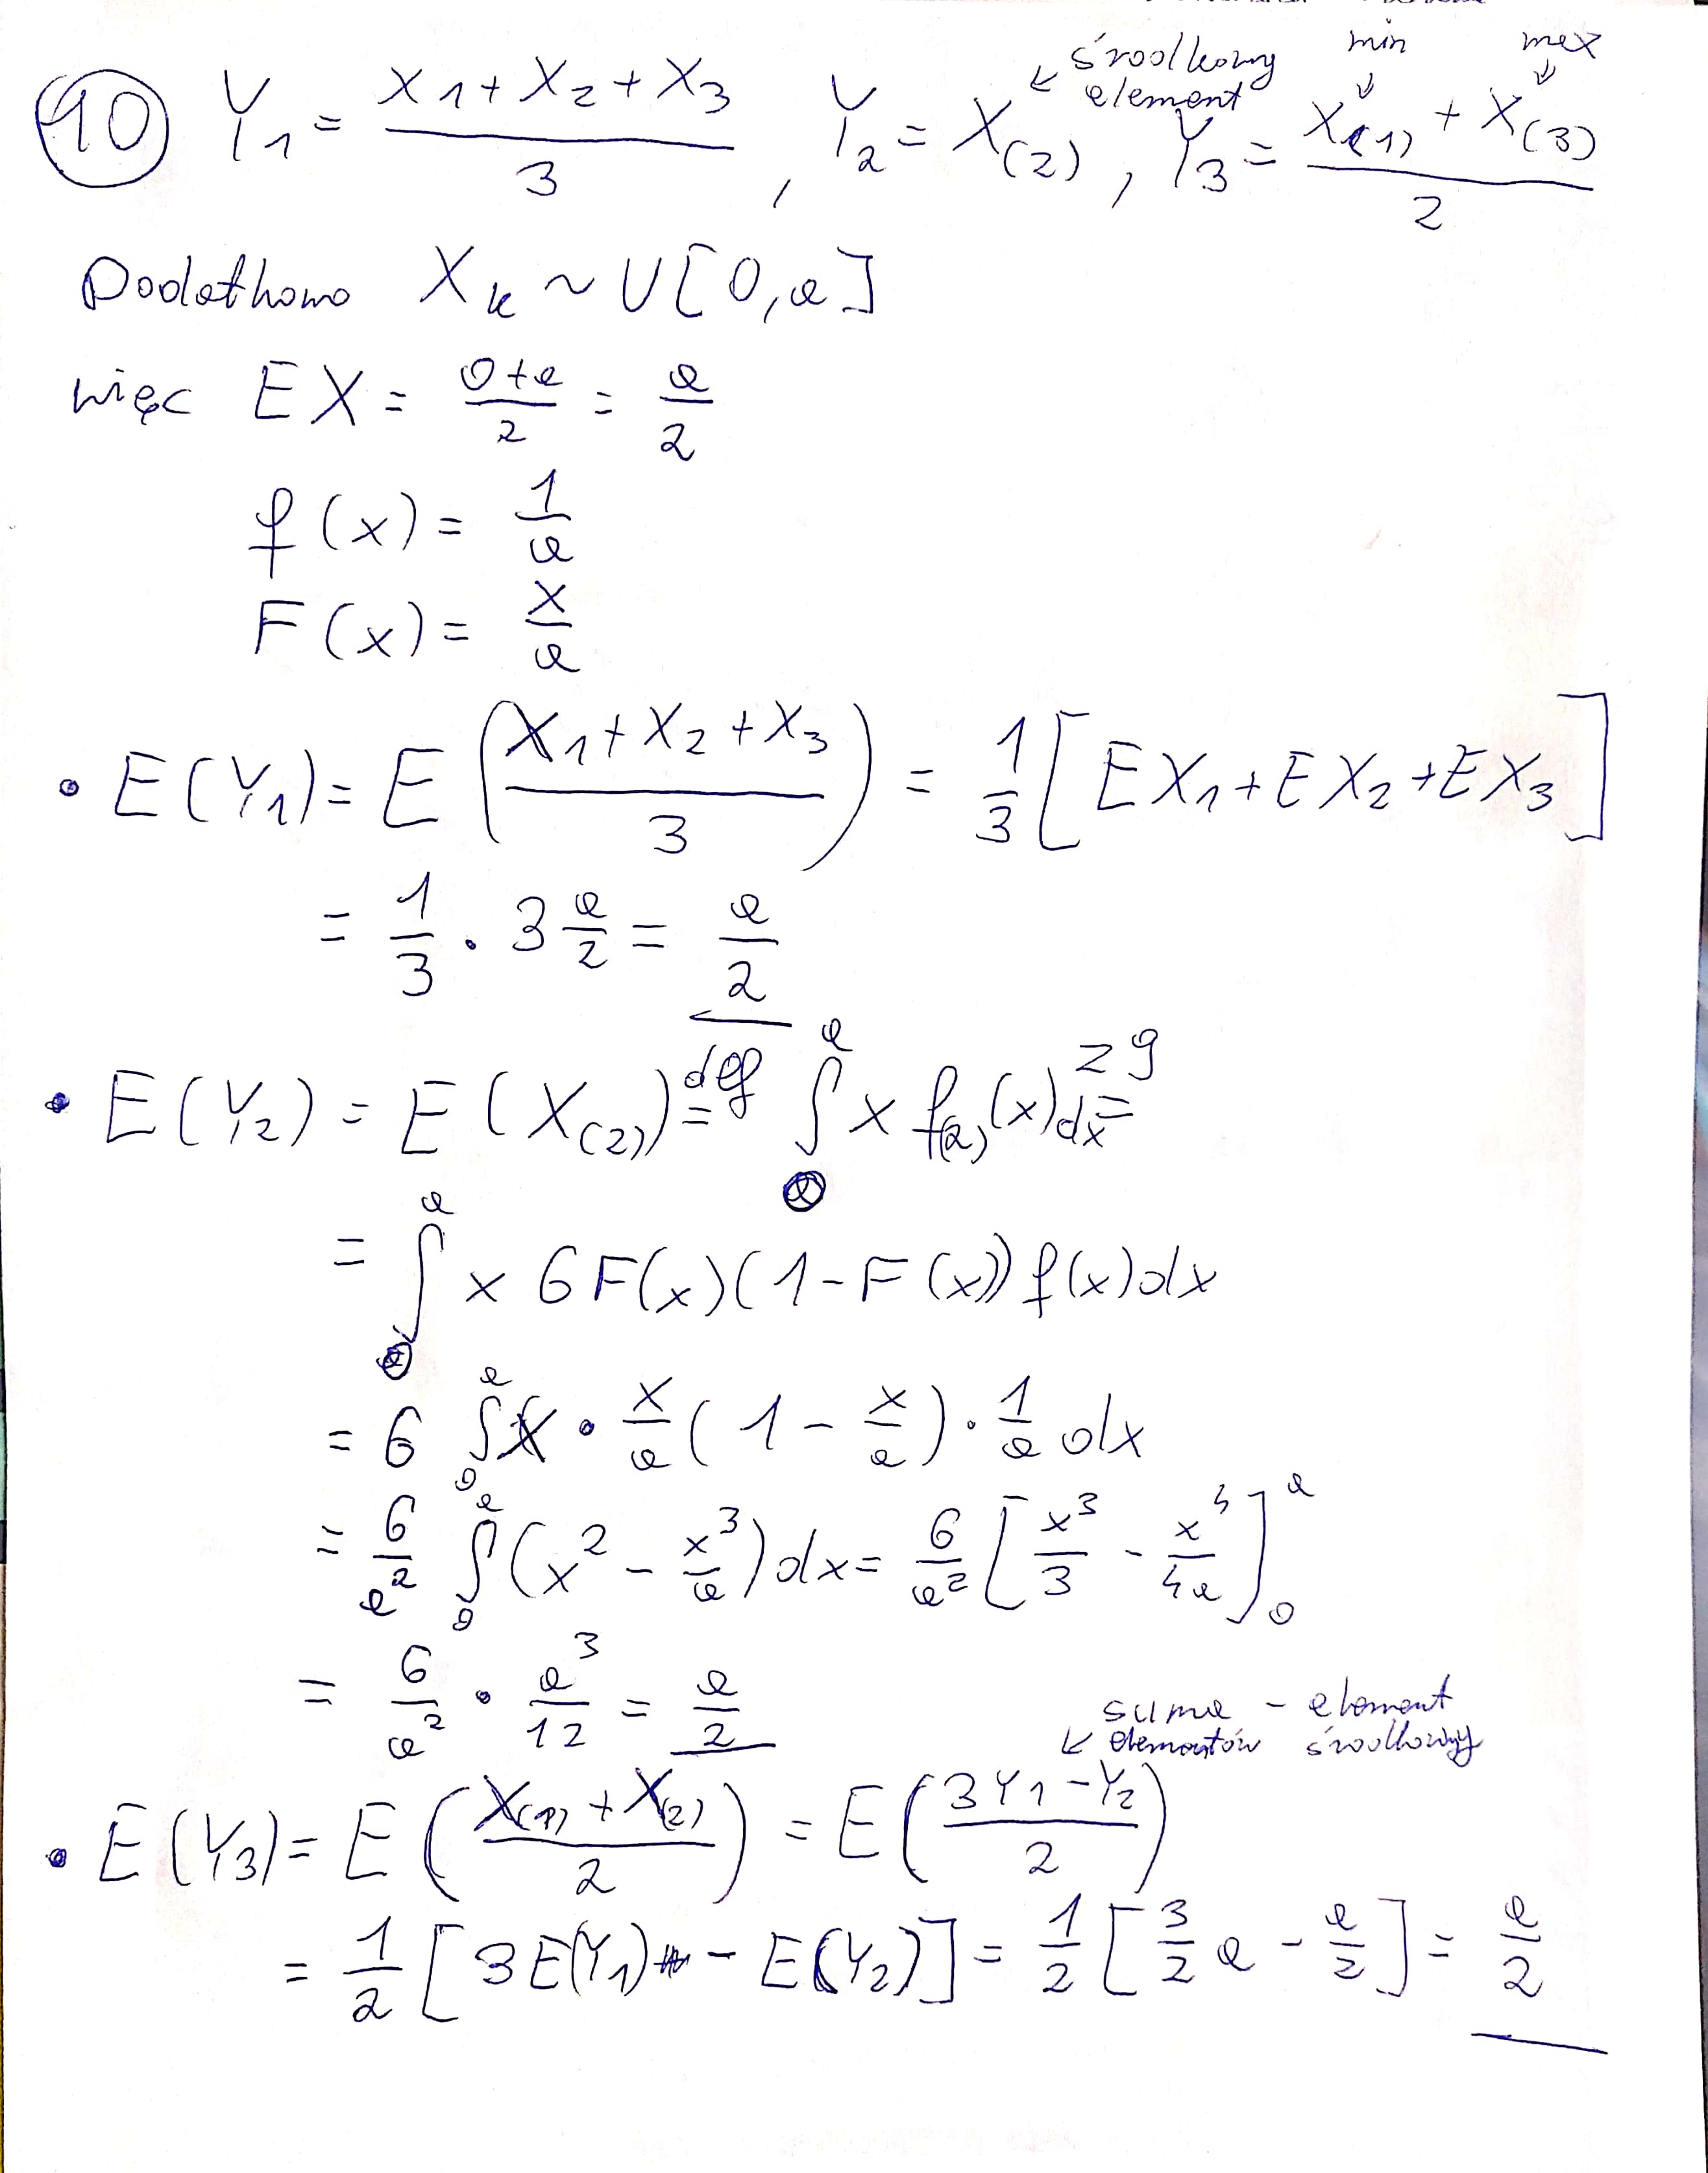 środkowy element min max
10 Y₁ = (X₁ + X₂ + X₃)/3 , Y₂ = X₍₂₎ , Y₃ = (X₍₁₎ + X₍₃₎)/2
Dodatkowo Xₖ ~ U[0, a]
więc EX = (0+a)/2 = a/2
f(x) = 1/a
F(x) = x/a
• E(Y₁) = E((X₁ + X₂ + X₃)/3) = 1/3 [EX₁ + EX₂ + EX₃]
= 1/3 · 3 a/2 = a/2
• E(Y₂) = E(X₍₂₎) def= ∫₀ᵃ x f₍₂₎(x)dx z9=
= ∫₀ᵃ x 6 F(x)(1 - F(x)) f(x)dx
= 6 ∫₀ᵃ x · x/a (1 - x/a) · 1/a dx
= 6/a² ∫₀ᵃ (x² - x³/a) dx = 6/a² [x³/3 - x⁴/4a]₀ᵃ
= 6/a² · a³/12 = a/2
suma elementów - element środkowy
• E(Y₃) = E((X₍₁₎ + X₍₂₎)/2) = E((3Y₁ - Y₂)/2)
= 1/2 [3E(Y₁) - E(Y₂)] = 1/2 [3/2 a - a/2] = a/2